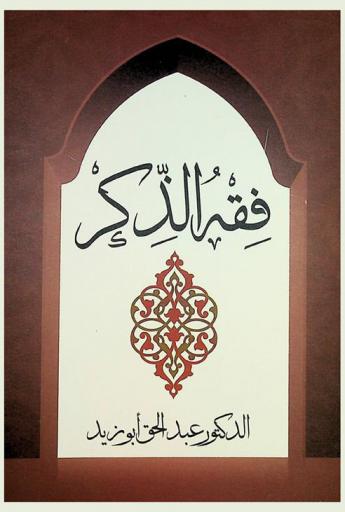 فِقْهُ الذِّكِرْ
الدكتور عبد الحق أبو زيد